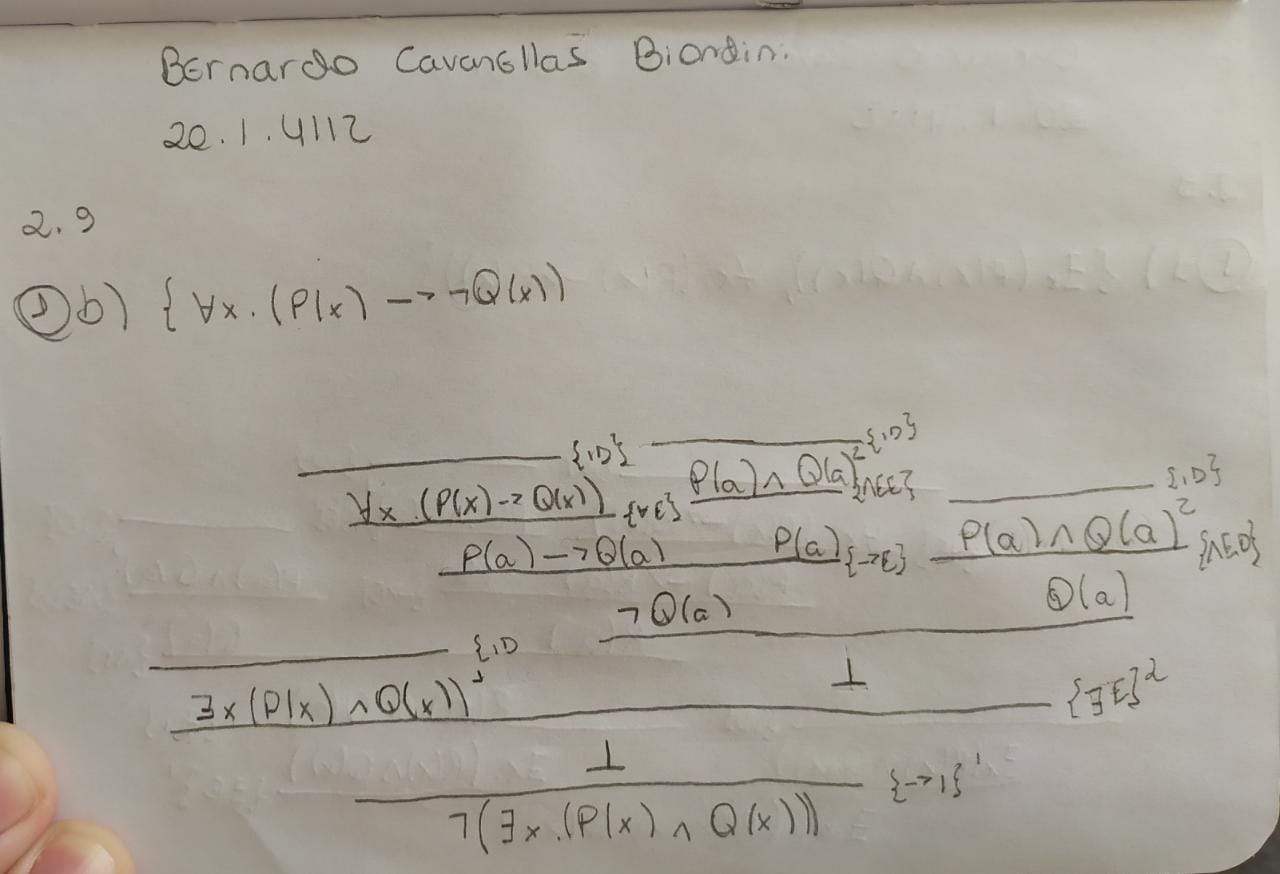 Bernardo Cavanellas Biondini
20.1.4112
2.9
① b) { ∀x. (P(x) → ¬Q(x))
{ID} {ID}
∀x. (P(x) → Q(x)) {∀E} P(a) ∧ Q(a)² {∧EE} {ID}
P(a) → ¬Q(a) P(a) {→E} P(a) ∧ Q(a)² {∧ED}
¬Q(a) Q(a)
{ID ⊥
∃x (P(x) ∧ Q(x))¹ {∃E}²
⊥
{→I}¹
¬(∃x. (P(x) ∧ Q(x)))